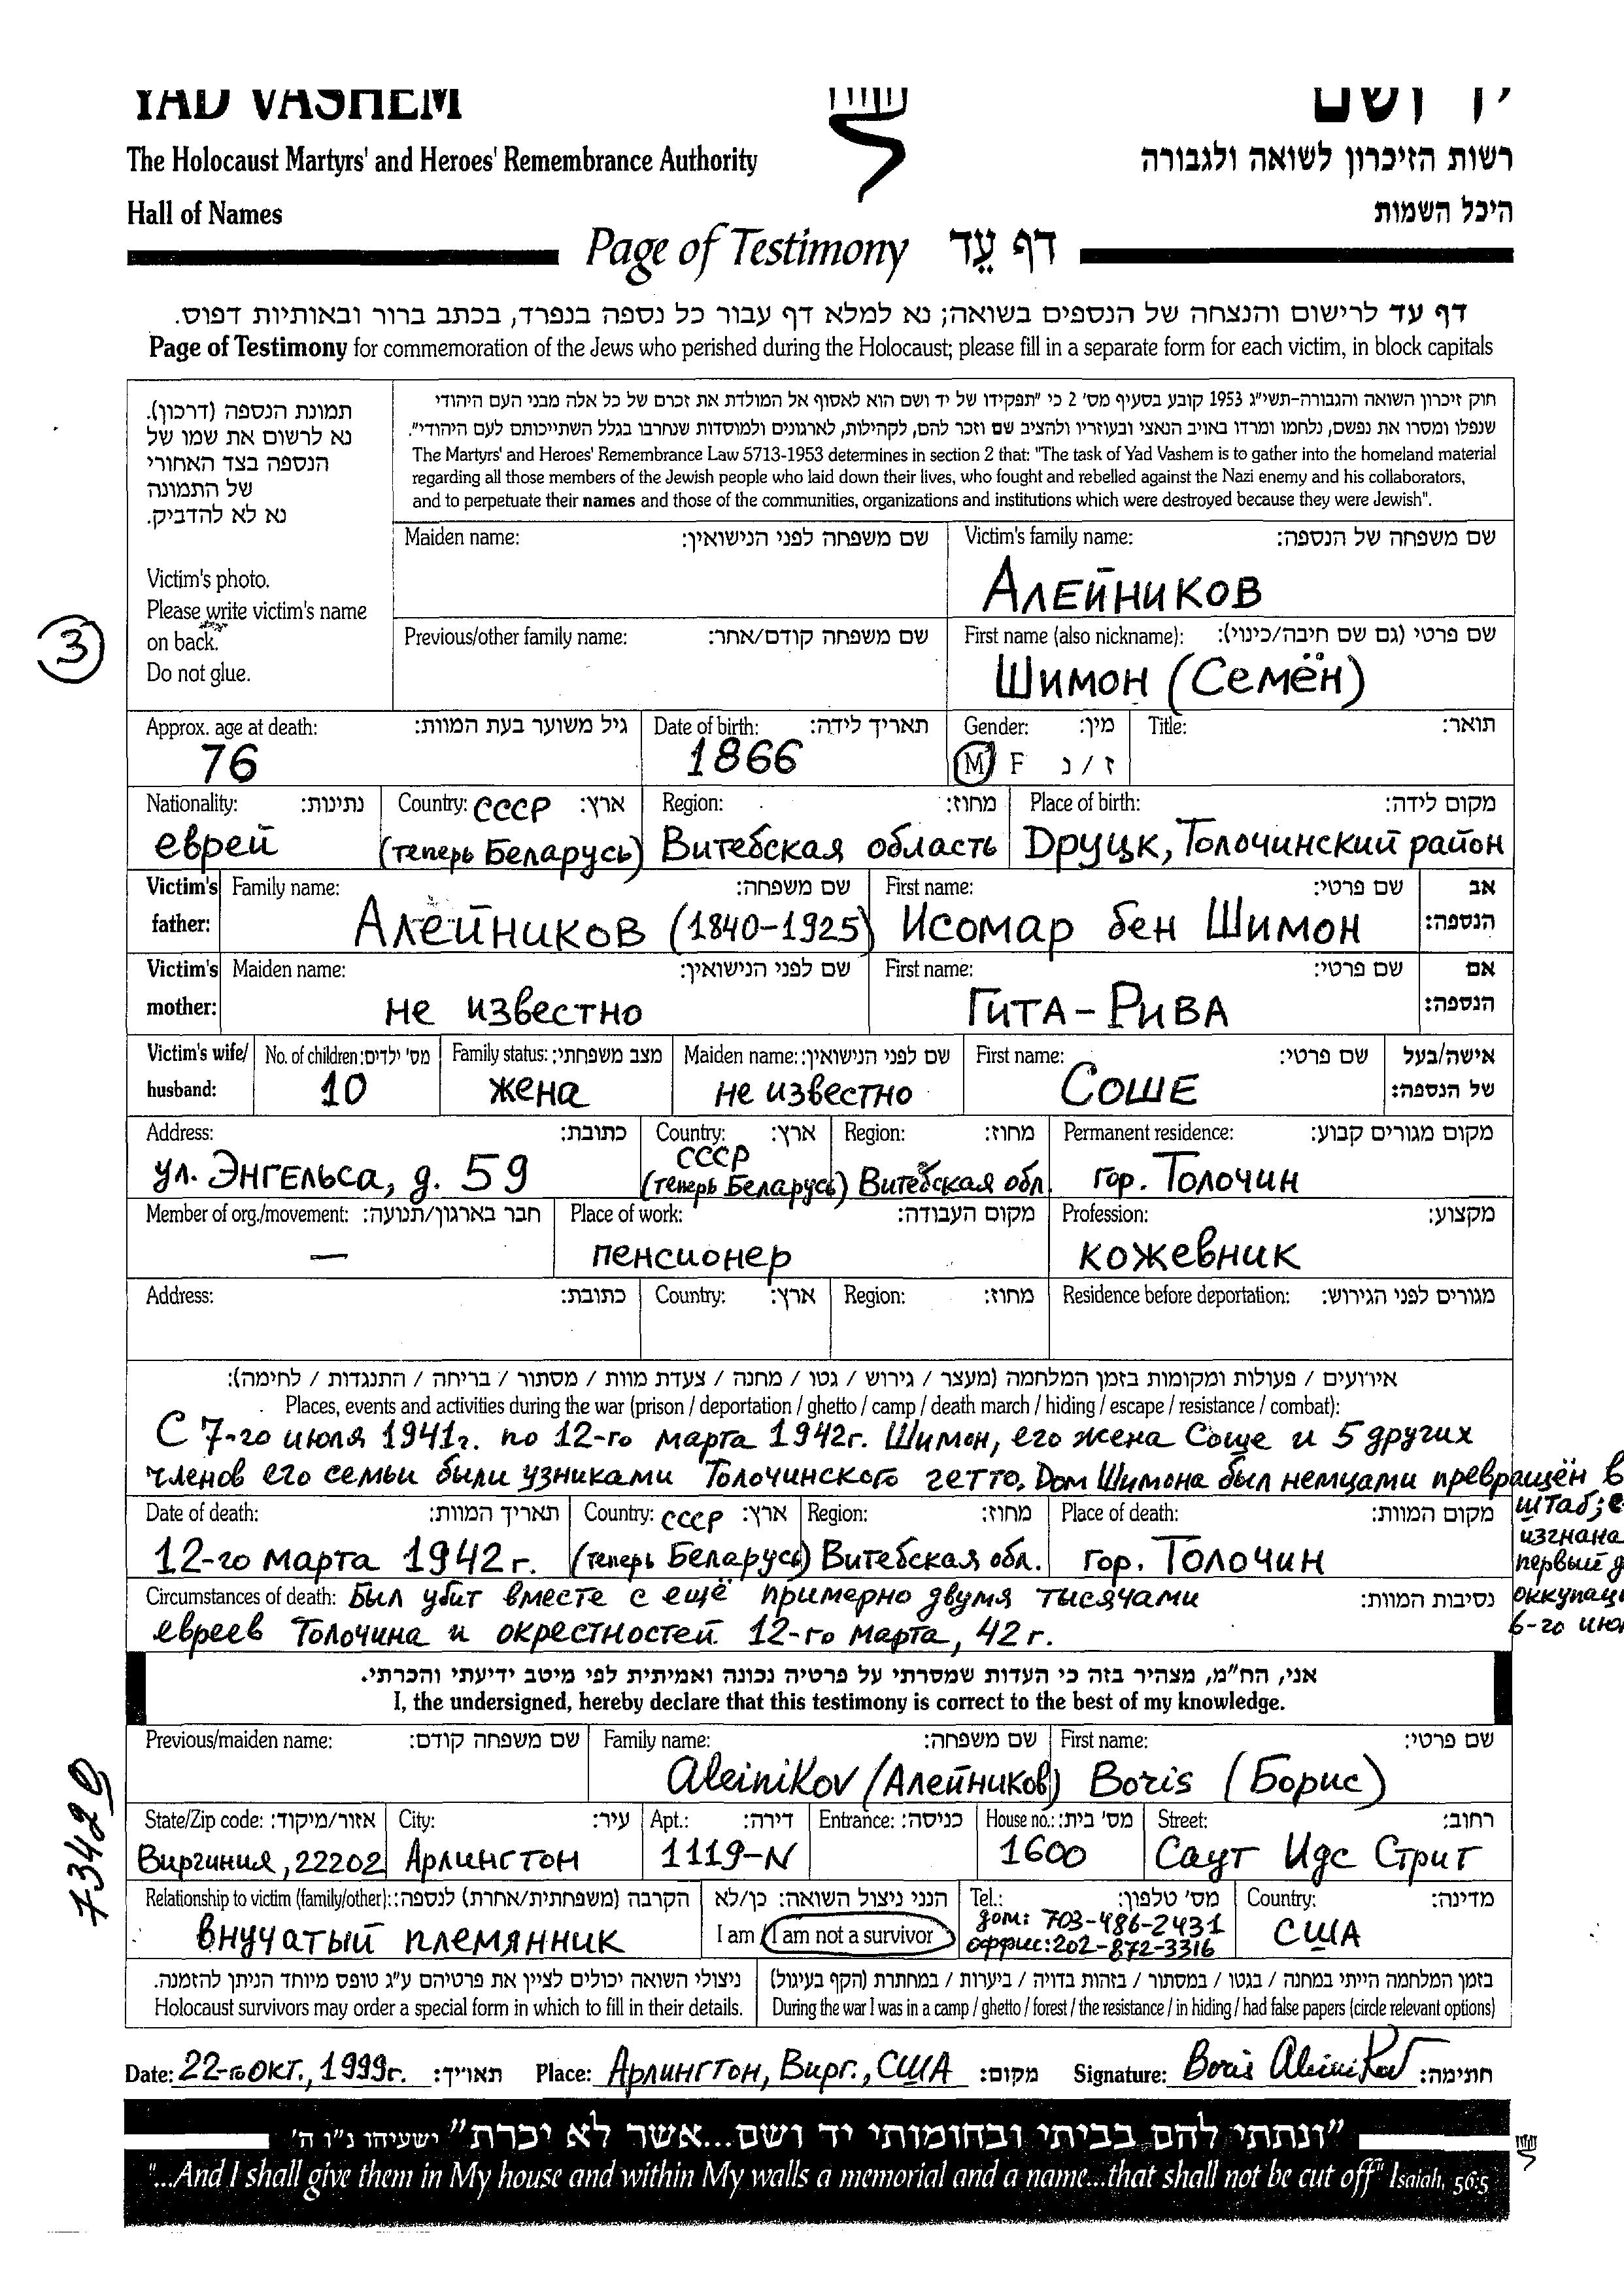 YAD VASHEM
יד ושם
The Holocaust Martyrs' and Heroes' Remembrance Authority
רשות הזיכרון לשואה ולגבורה
Hall of Names
היכל השמות
Page of Testimony דף עֵד
דף עד לרישום והנצחה של הנספים בשואה; נא למלא דף עבור כל נספה בנפרד, בכתב ברור ובאותיות דפוס.
Page of Testimony for commemoration of the Jews who perished during the Holocaust; please fill in a separate form for each victim, in block capitals
תמונת הנספה (דרכון).
נא לרשום את שמו של
הנספה בצד האחורי
של התמונה
נא לא להדביק.
Victim's photo.
Please write victim's name
on back.
Do not glue.
חוק זיכרון השואה והגבורה-תשי"ג 1953 קובע בסעיף מס' 2 כי "תפקידו של יד ושם הוא לאסוף אל המולדת את זכרם של כל אלה מבני העם היהודי
שנפלו ומסרו את נפשם, נלחמו ומרדו באויב הנאצי ובעוזריו ולהציב שם וזכר להם, לקהילות, לארגונים ולמוסדות שנחרבו בגלל השתייכותם לעם היהודי".
The Martyrs' and Heroes' Remembrance Law 5713-1953 determines in section 2 that: "The task of Yad Vashem is to gather into the homeland material
regarding all those members of the Jewish people who laid down their lives, who fought and rebelled against the Nazi enemy and his collaborators,
and to perpetuate their names and those of the communities, organizations and institutions which were destroyed because they were Jewish".
Maiden name: שם משפחה לפני הנישואין: Victim's family name: שם משפחה של הנספה:
Алейников
3
Previous/other family name: שם משפחה קודם/אחר: First name (also nickname): שם פרטי (גם שם חיבה/כינוי):
Шимон (Семён)
Approx. age at death: גיל משוער בעת המוות: Date of birth: תאריך לידה: Gender: מין: Title: תואר:
76 1866 M F ז / נ
Nationality: נתינות: Country: СССР ארץ: Region: מחוז: Place of birth: מקום לידה:
еврей (теперь Беларусь) Витебская область Друцк, Толочинский район
Victim's father: Family name: שם משפחה: First name: שם פרטי: אב הנספה:
Алейников (1840-1925) Исомар бен Шимон
Victim's mother: Maiden name: שם לפני הנישואין: First name: שם פרטי: אם הנספה:
не известно Гита-Рива
Victim's wife/ husband: No. of children: מס' ילדים: Family status: מצב משפחתי: Maiden name: שם לפני הנישואין: First name: שם פרטי: אישה/בעל של הנספה:
10 жена не известно Соше
Address: כתובת: Country: ארץ: Region: מחוז: Permanent residence: מקום מגורים קבוע:
ул. Энгельса, д. 59 СССР (теперь Беларусь) Витебская обл. гор. Толочин
Member of org./movement: חבר בארגון/תנועה: Place of work: מקום העבודה: Profession: מקצוע:
— пенсионер кожевник
Address: כתובת: Country: ארץ: Region: מחוז: Residence before deportation: מגורים לפני הגירוש:
אירועים / פעולות ומקומות בזמן המלחמה (מעצר / גירוש / גטו / מחנה / צעדת מוות / מסתור / בריחה / התנגדות / לחימה):
Places, events and activities during the war (prison / deportation / ghetto / camp / death march / hiding / escape / resistance / combat):
С 7-го июля 1941г. по 12-го марта 1942г. Шимон, его жена Соше и 5 других
членов его семьи были узниками Толочинского гетто. Дом Шимона был немцами превращён в
штаб;
изгнана
первый
6-го
Date of death: תאריך המוות: Country: СССР ארץ: Region: מחוז: Place of death: מקום המוות:
12-го марта 1942г. (теперь Беларусь) Витебская обл. гор. Толочин
Circumstances of death: Был убит вместе с ещё примерно двумя тысячами נסיבות המוות:
евреев Толочина и окрестностей 12-го марта, 42г.
אני, הח"מ, מצהיר בזה כי העדות שמסרתי על פרטיה נכונה ואמיתית לפי מיטב ידיעתי והכרתי.
I, the undersigned, hereby declare that this testimony is correct to the best of my knowledge.
Previous/maiden name: שם משפחה קודם: Family name: שם משפחה: First name: שם פרטי:
Aleinikov (Алейников) Boris (Борис)
State/Zip code: אזור/מיקוד: City: עיר: Apt.: דירה: Entrance: כניסה: House no.: מס' בית: Street: רחוב:
Виргиния, 22202 Арлингтон 1119-N 1600 Саут Идс Стрит
Relationship to victim (family/other): הקרבה (משפחתית/אחרת) לנספה: הנני ניצול השואה: כן/לא Tel.: מס' טלפון: Country: מדינה:
внучатый племянник I am / I am not a survivor дом: 703-486-2431 США
оффис: 202-872-3316
73420
ניצולי השואה יכולים לציין את פרטיהם ע"ג טופס מיוחד הניתן להזמנה.
Holocaust survivors may order a special form in which to fill in their details.
בזמן המלחמה הייתי במחנה / בגטו / במסתור / בזהות בדויה / ביערות / במחתרת (הקף בעיגול)
During the war I was in a camp / ghetto / forest / the resistance / in hiding / had false papers (circle relevant options)
Date: 22-го окт., 1999г. תאריך: Place: Арлингтон, Вирг., США מקום: Signature: Boris Aleinikov חתימה:
"ונתתי להם בביתי ובחומותי יד ושם...אשר לא יכרת" ישעיהו נ"ו ה'
"...And I shall give them in My house and within My walls a memorial and a name...that shall not be cut off" Isaiah, 56:5